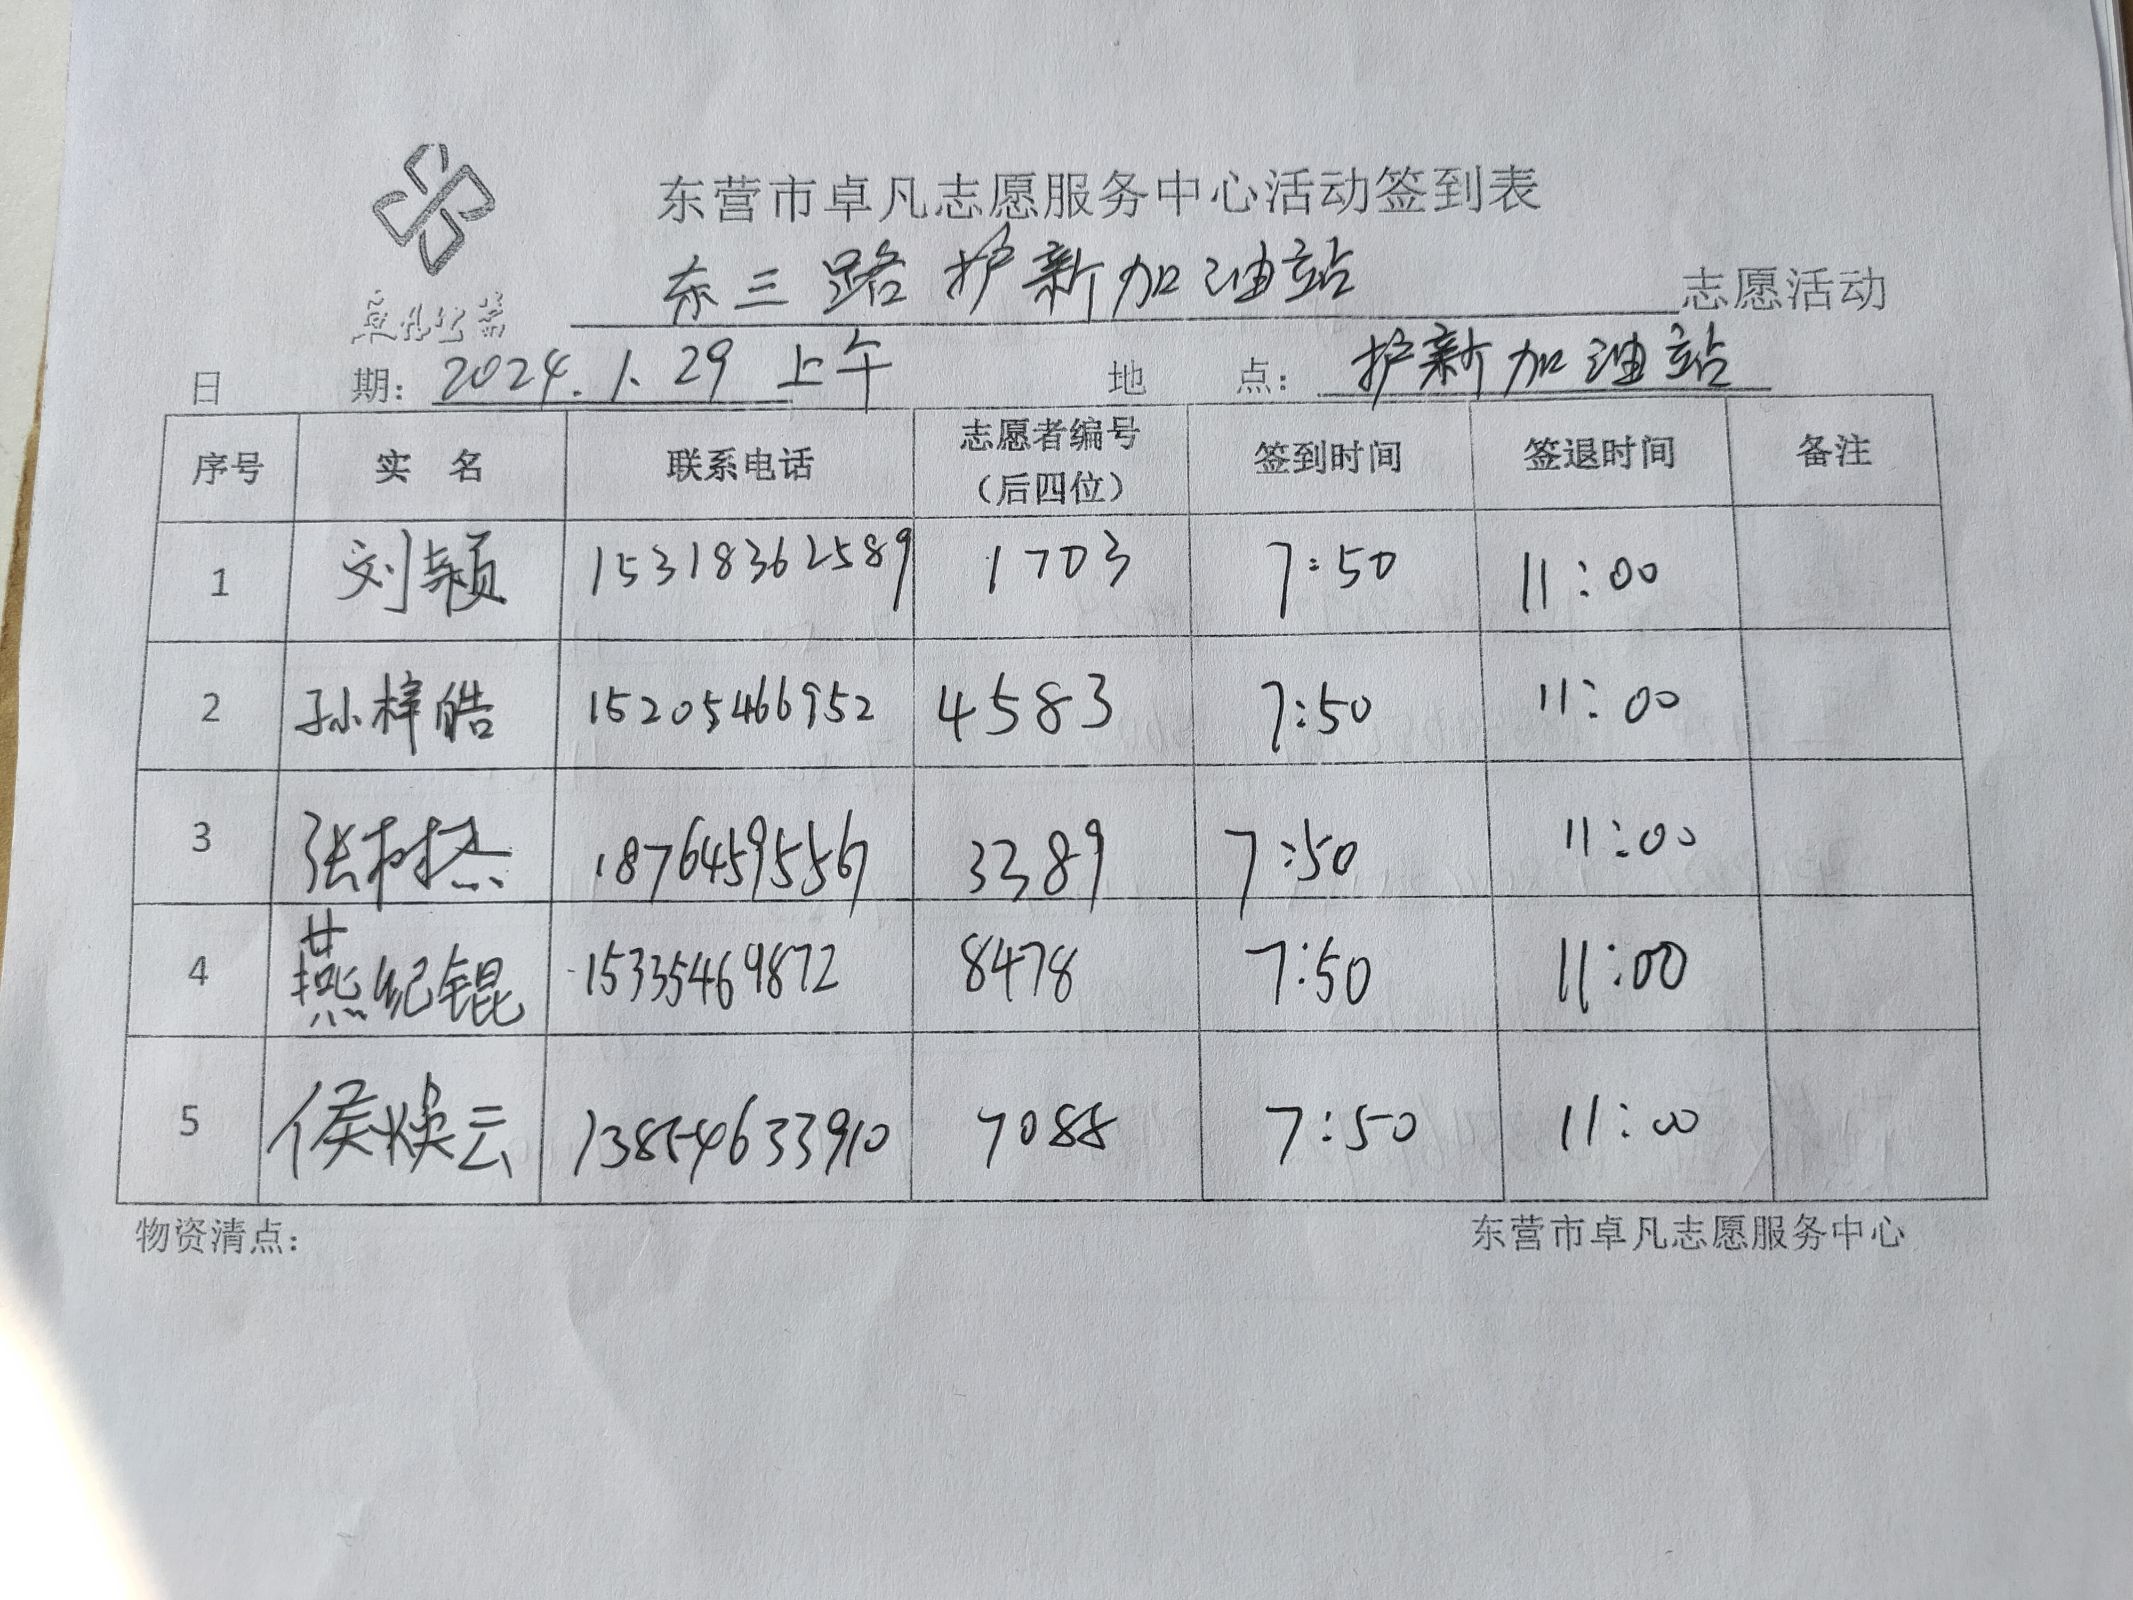 东营市卓凡志愿服务中心活动签到表
卓凡公益
东三路护新加油站 志愿活动
日期：2024.1.29 上午 地点：护新加油站
序号 实名 联系电话 志愿者编号（后四位） 签到时间 签退时间 备注
1 刘颖 15318362589 1703 7:50 11:00
2 孙梓皓 15205466952 4583 7:50 11:00
3 张树杰 18764595567 3389 7:50 11:00
4 燕纪锟 15335469872 8478 7:50 11:00
5 侯焕云 13854633910 7088 7:50 11:00
物资清点： 东营市卓凡志愿服务中心